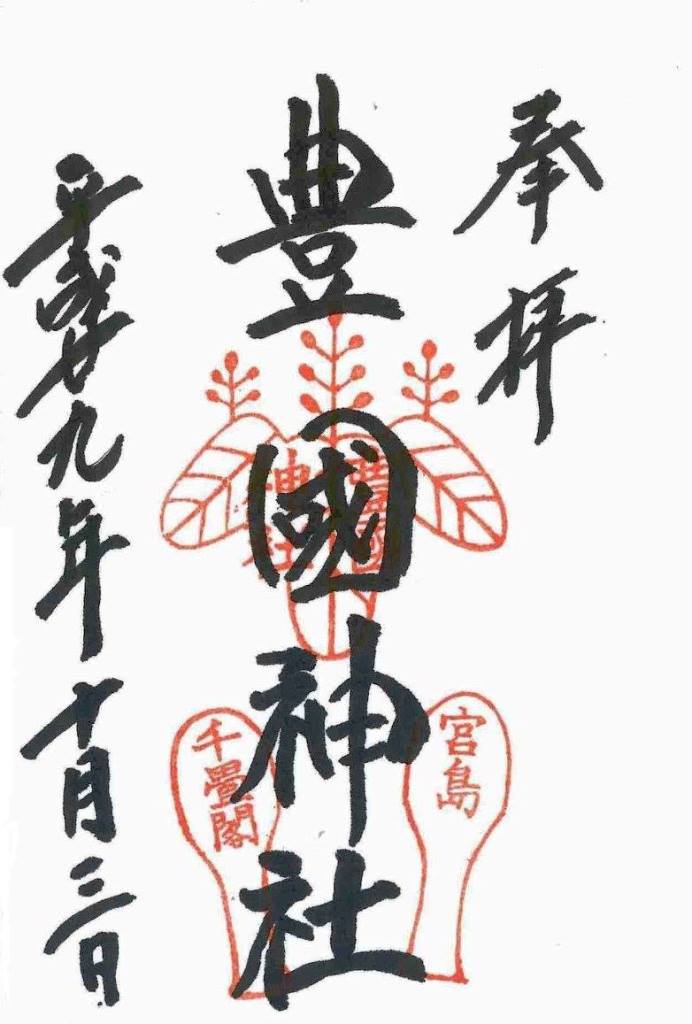 奉拝
豊國神社
豊國
神社
宮島
千畳閣
平成廿九年十月三日